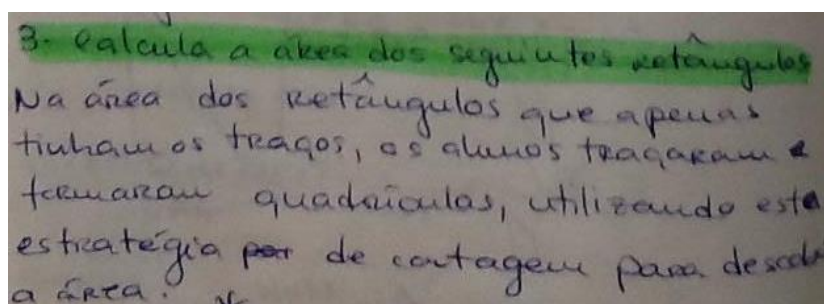 3- Calcula a área dos seguintes retângulos
Na área dos retângulos que apenas
tinham os traços, os alunos traçaram e
formaram quadrículas, utilizando esta
estratégia de contagem para descob
a área.